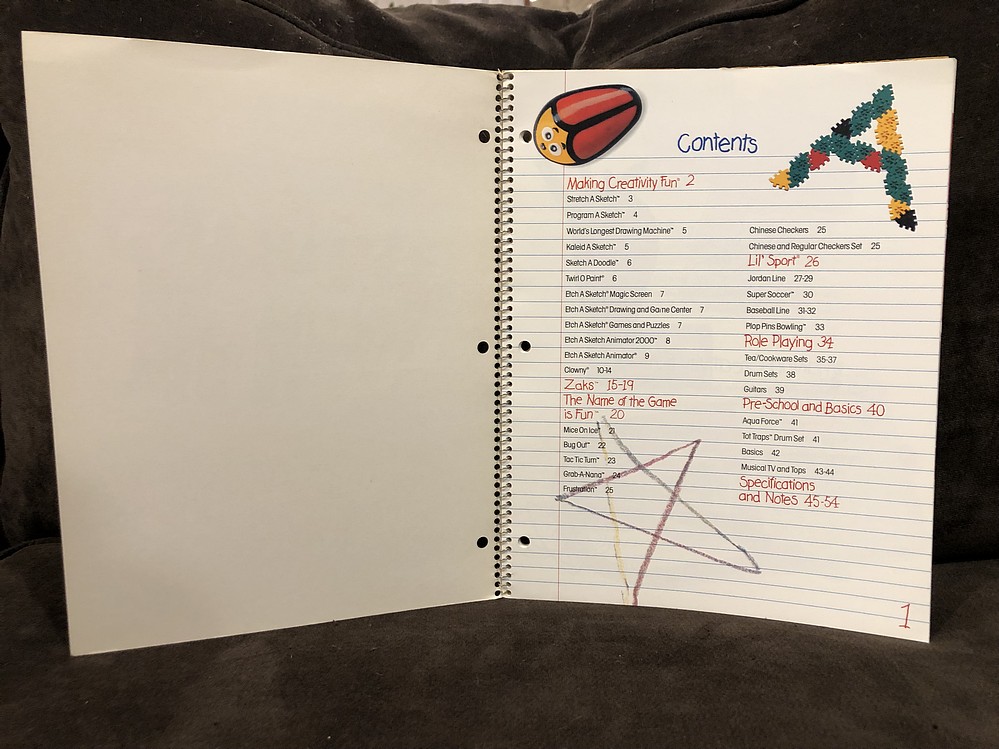 Contents
Making Creativity Fun™ 2
Stretch A Sketch™ 3
Program A Sketch™ 4
World's Longest Drawing Machine™ 5
Kaleid A Sketch™ 5
Sketch A Doodle™ 6
Twirl O Paint® 6
Etch A Sketch® Magic Screen 7
Etch A Sketch® Drawing and Game Center 7
Etch A Sketch® Games and Puzzles 7
Etch A Sketch Animator 2000™ 8
Etch A Sketch Animator® 9
Clowny® 10-14
Zaks™ 15-19
The Name of the Game
is Fun™ 20
Mice On Ice® 21
Bug Out™ 22
Tac Tic Turn™ 23
Grab-A-Nana™ 24
Frustration™ 25
Chinese Checkers 25
Chinese and Regular Checkers Set 25
Lil' Sport® 26
Jordan Line 27-29
Super Soccer™ 30
Baseball Line 31-32
Plop Pins Bowling™ 33
Role Playing 34
Tea/Cookware Sets 35-37
Drum Sets 38
Guitars 39
Pre-School and Basics 40
Aqua Force™ 41
Tot Traps™ Drum Set 41
Basics 42
Musical TV and Tops 43-44
Specifications
and Notes 45-54
1